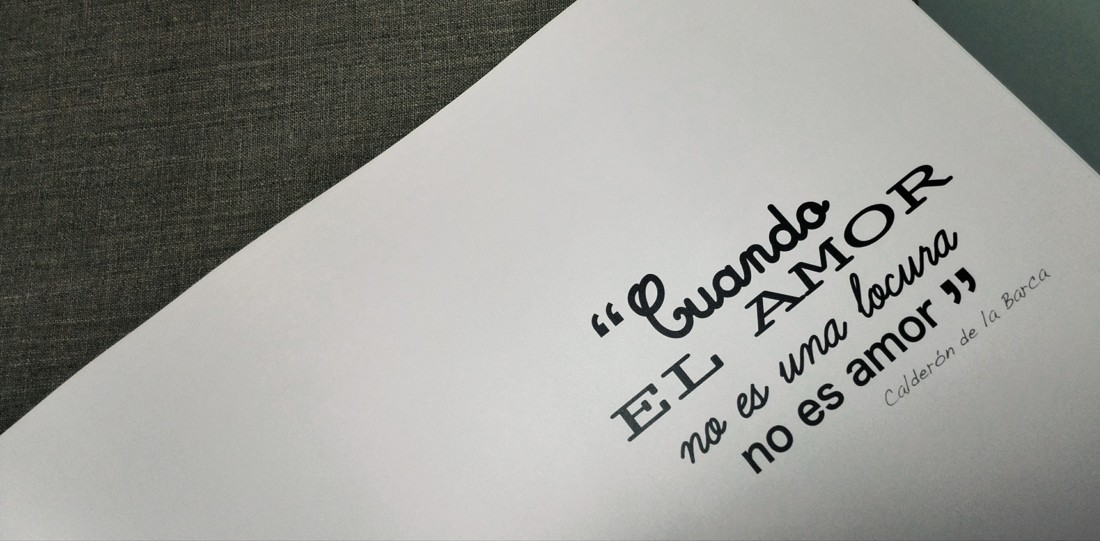 “Cuando
EL AMOR
no es una locura
no es amor”
Calderón de la Barca